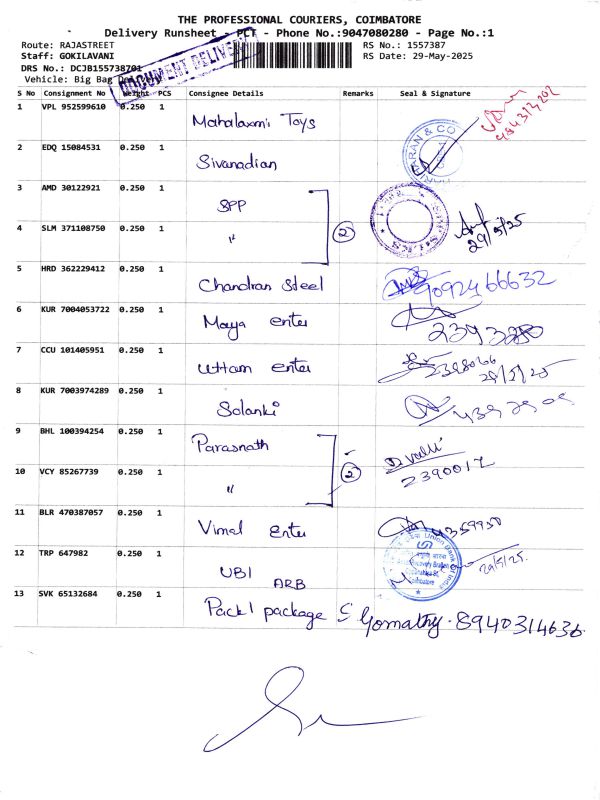 THE PROFESSIONAL COURIERS, COIMBATORE
Delivery Runsheet - PCT - Phone No.:9047080280 - Page No.:1
Route: RAJASTREET RS No.: 1557387
Staff: GOKILAVANI RS Date: 29-May-2025
DRS No.: DCJB155738701
Vehicle: Big Bag
DOCUMENT DELIVERY
S No Consignment No Weight PCS Consignee Details Remarks Seal & Signature
1 VPL 952599610 0.250 1 Mahalaxmi Toys
2 EDQ 15084531 0.250 1 Sivanadian
3 AMD 30122921 0.250 1 SPP
4 SLM 371108750 0.250 1 " 2 29/5/25
5 HRD 362229412 0.250 1 Chandran Steel 9092466632
6 KUR 7004053722 0.250 1 Maya enter
7 CCU 101405951 0.250 1 Uttam enter 2398066
29/5/25
8 KUR 7003974289 0.250 1 Solanki
9 BHL 100394254 0.250 1 Parasnath
10 VCY 85267739 0.250 1 " 2 2390012
11 BLR 470387057 0.250 1 Vimal enter
12 TRP 647982 0.250 1 UBI ARB Union Bank of India 29/5/25.
13 SVK 65132684 0.250 1 Pack1 package S Gomathy. 8940314636